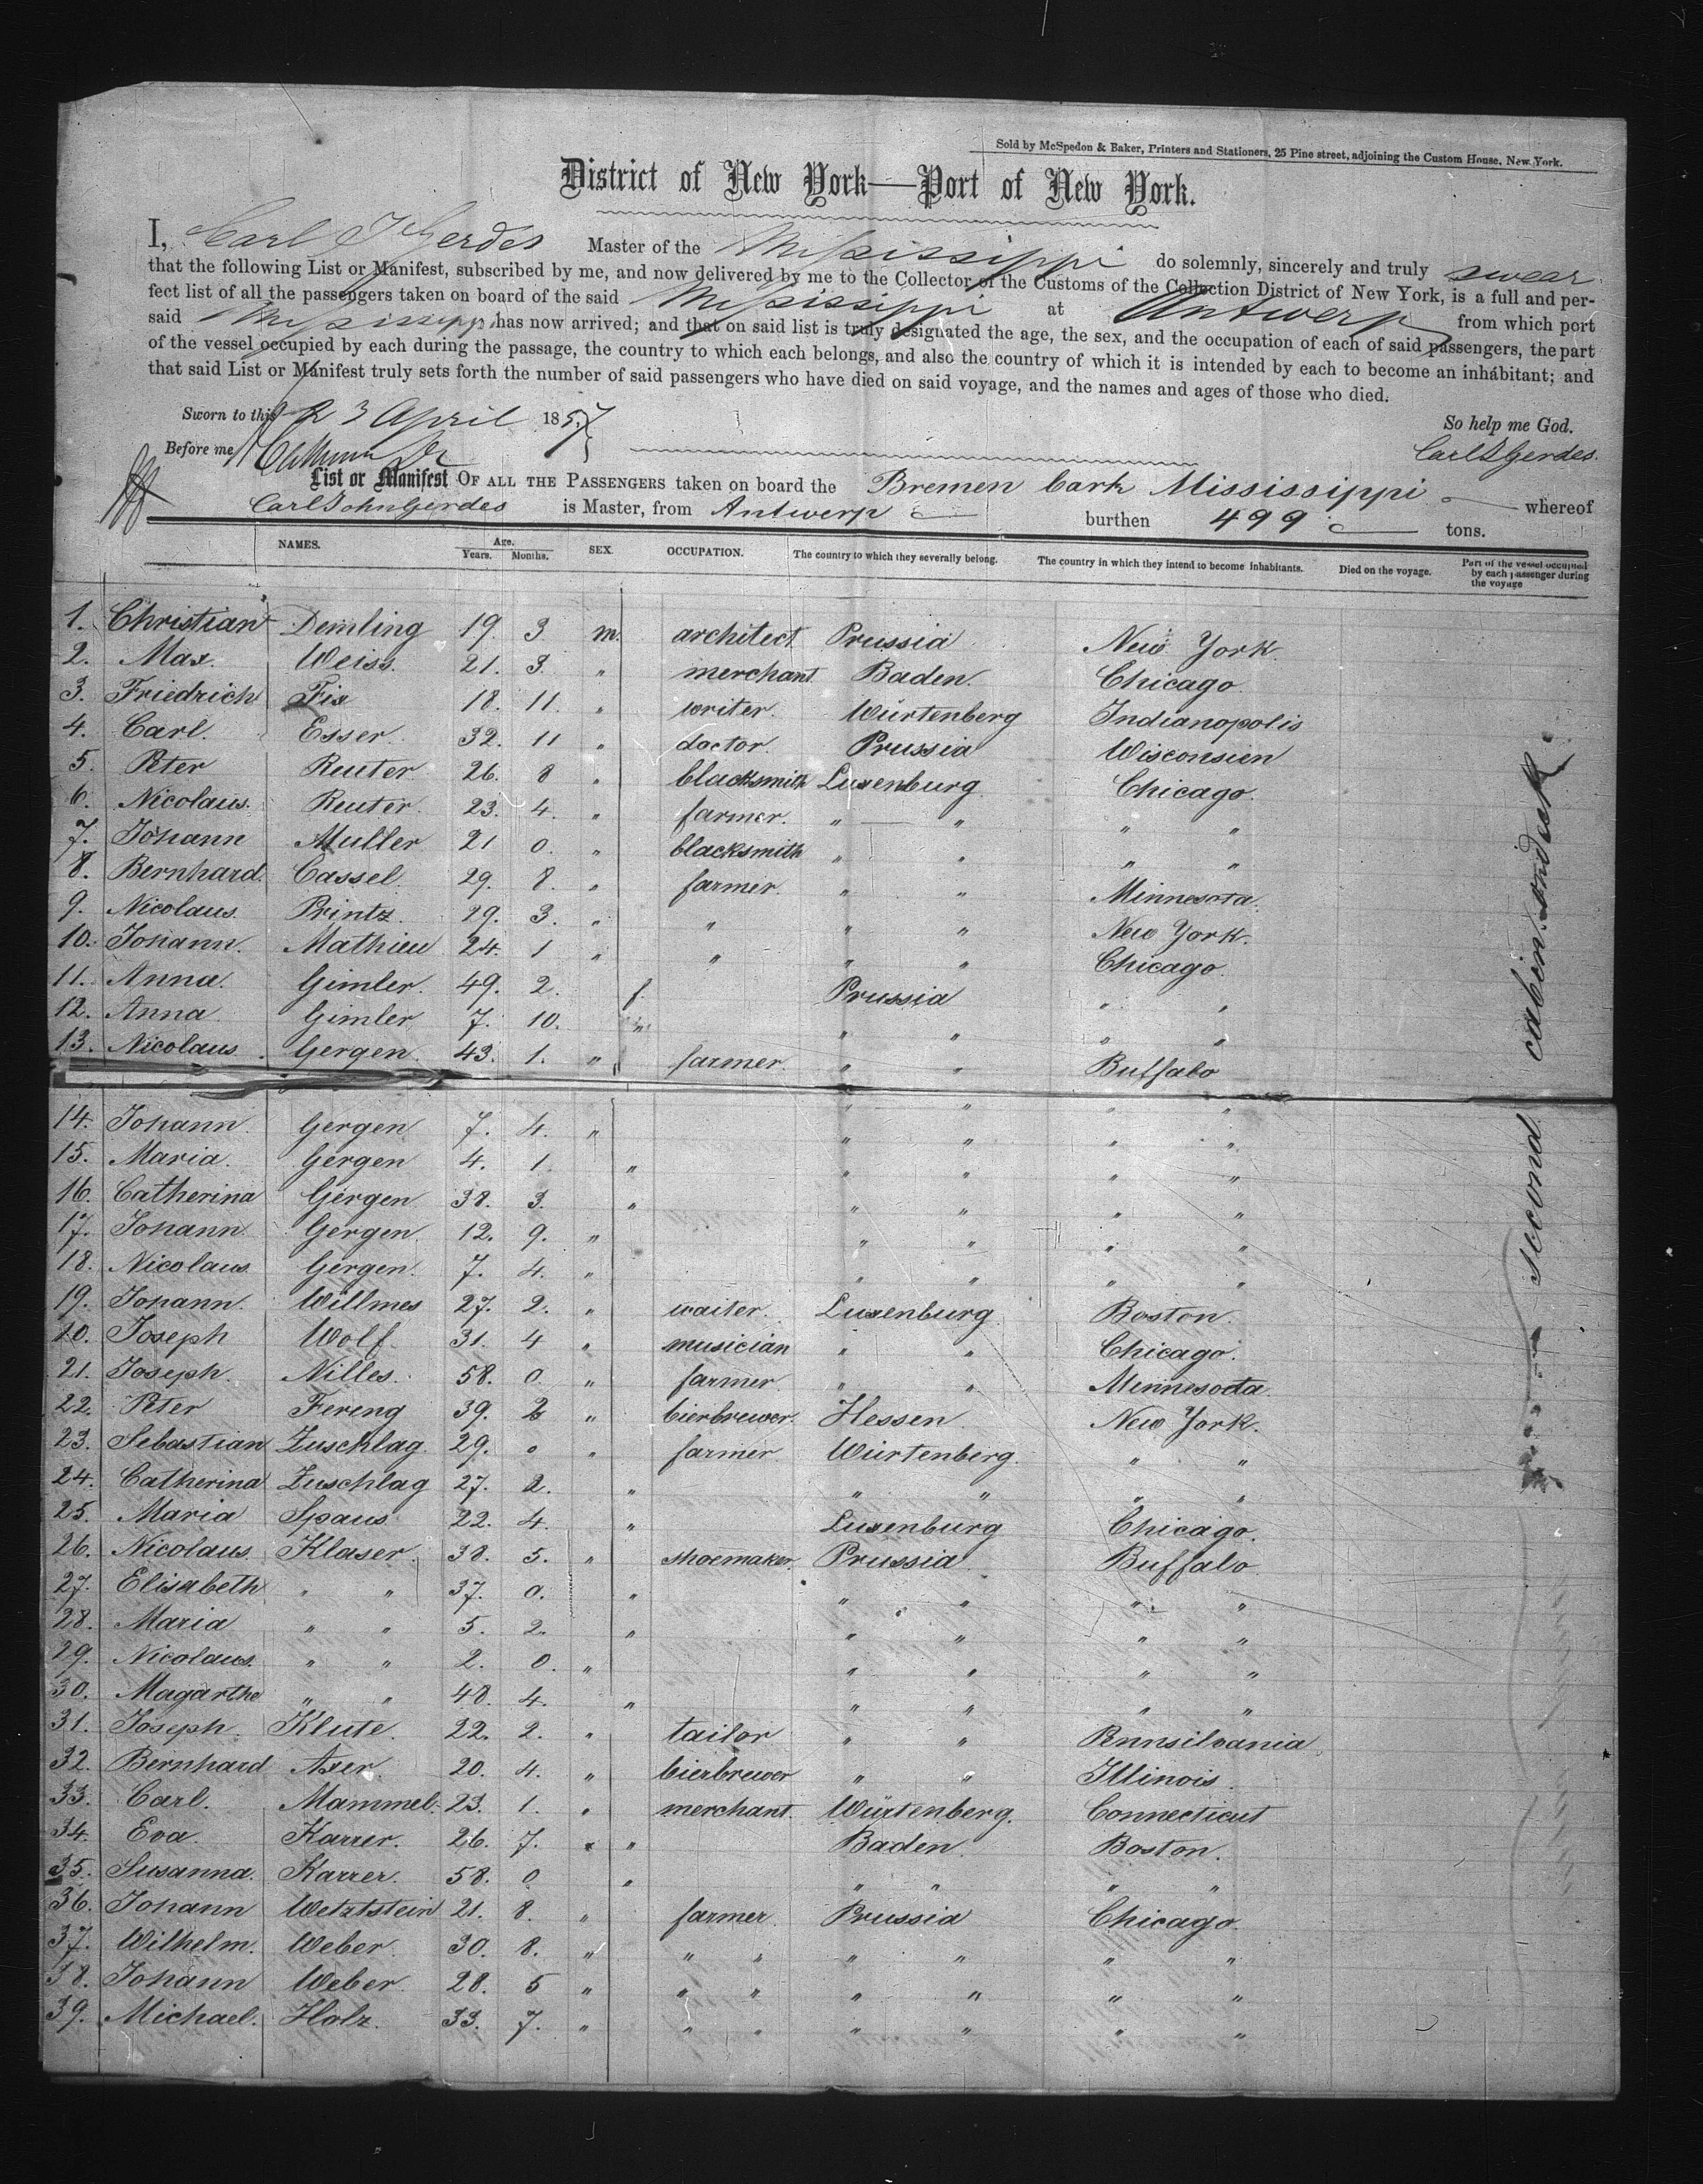 Sold by McSpedon & Baker, Printers and Stationers, 25 Pine street, adjoining the Custom House, New York.
District of New York—Port of New York.
I, Carl J Gerdes Master of the Mississippi do solemnly, sincerely and truly swear
that the following List or Manifest, subscribed by me, and now delivered by me to the Collector of the Customs of the Collection District of New York, is a full and per-
fect list of all the passengers taken on board of the said Mississippi at Antwerp from which port
said Mississippi has now arrived; and that on said list is truly designated the age, the sex, and the occupation of each of said passengers, the part
of the vessel occupied by each during the passage, the country to which each belongs, and also the country of which it is intended by each to become an inhabitant; and
that said List or Manifest truly sets forth the number of said passengers who have died on said voyage, and the names and ages of those who died.
Sworn to this 23 April 1857 So help me God.
Before me Carl J Gerdes.
List or Manifest OF ALL THE PASSENGERS taken on board the Bremen bark Mississippi whereof
Carl John Gerdes is Master, from Antwerp burthen 499 tons.
NAMES. Age. Years. Months. SEX. OCCUPATION. The country to which they severally belong. The country in which they intend to become inhabitants. Died on the voyage. Part of the vessel occupied by each passenger during the voyage
1. Christian Demling 19. 3 m. architect Prussia New York.
2. Max. Weiss. 21. 3. " merchant Baden. Chicago.
3. Friedrich Fix 18. 11. " writer. Würtenberg Indianopolis
4. Carl. Esser. 32. 11 " doctor. Prussia Wisconsien
5. Peter Reuter 26. 8 " blacksmith Luxenburg Chicago.
6. Nicolaus. Reuter. 23. 4. " farmer. " " " "
7. Johann Muller 21 0. " blacksmith " " " "
8. Bernhard. Cassel. 29. 8. " farmer. " " Minnesota.
9. Nicolaus. Printz. 29. 3. " " " " New York.
10. Johann. Mathieu 24. 1 " " " " Chicago.
11. Anna. Gimler. 49. 2. f. Prussia " "
12. Anna. Gimler 7. 10. " " " " "
13. Nicolaus. Gergen. 43. 1. " farmer. " " Buffalo
" " " "
14. Johann. Gergen 7. 4. " " " " "
15. Maria. Gergen 4. 1. " " " " "
16. Catherina Gergen 38. 3. " " " " "
17. Johann. Gergen. 12. 9. " " " " "
18. Nicolaus Gergen. 7. 4. " " " " "
19. Johann. Willmes 27. 2. " waiter. Luxenburg. Boston.
10. Joseph Wolf. 31. 4 " musician " " Chicago.
21. Joseph. Nilles. 58. 0. " farmer. " " Minnesota.
22. Peter Fering 39. 2 " bierbrewer. Hessen New York.
23. Sebastian Zuschlag. 29. 0 " farmer Würtenberg. " "
24. Catherina Zuschlag 27. 2. " " " " "
25. Maria Spaus 22. 4. " Luxenburg Chicago.
26. Nicolaus. Klaser. 38. 5. " shoemaker. Prussia Buffalo.
27. Elisabeth " " 37. 0. " " " " "
28. Maria " " 5. 2. " " " " "
29. Nicolaus. " " 2. 0. " " " " "
30. Magarthe " " 48. 4. " " " " "
31. Joseph. Klute. 22. 2. " tailor " " Pennsilvania
32. Bernhard Axer. 20. 4. " bierbrewer " " Illinois.
33. Carl. Mammel. 23. 1. " merchant. Würtenberg. Connecticut
34. Eva. Karrer. 26. 7. " " Baden. Boston.
35. Susanna. Karrer. 58. 0 " " " " "
36. Johann Wetztstein 21. 8. " farmer. Prussia Chicago.
37. Wilhelm. Weber. 30. 8. " " " " " " "
38. Johann Weber. 28. 5 " " " " " " "
39. Michael. Holz. 33. 7. " " " " " " "
second cabin